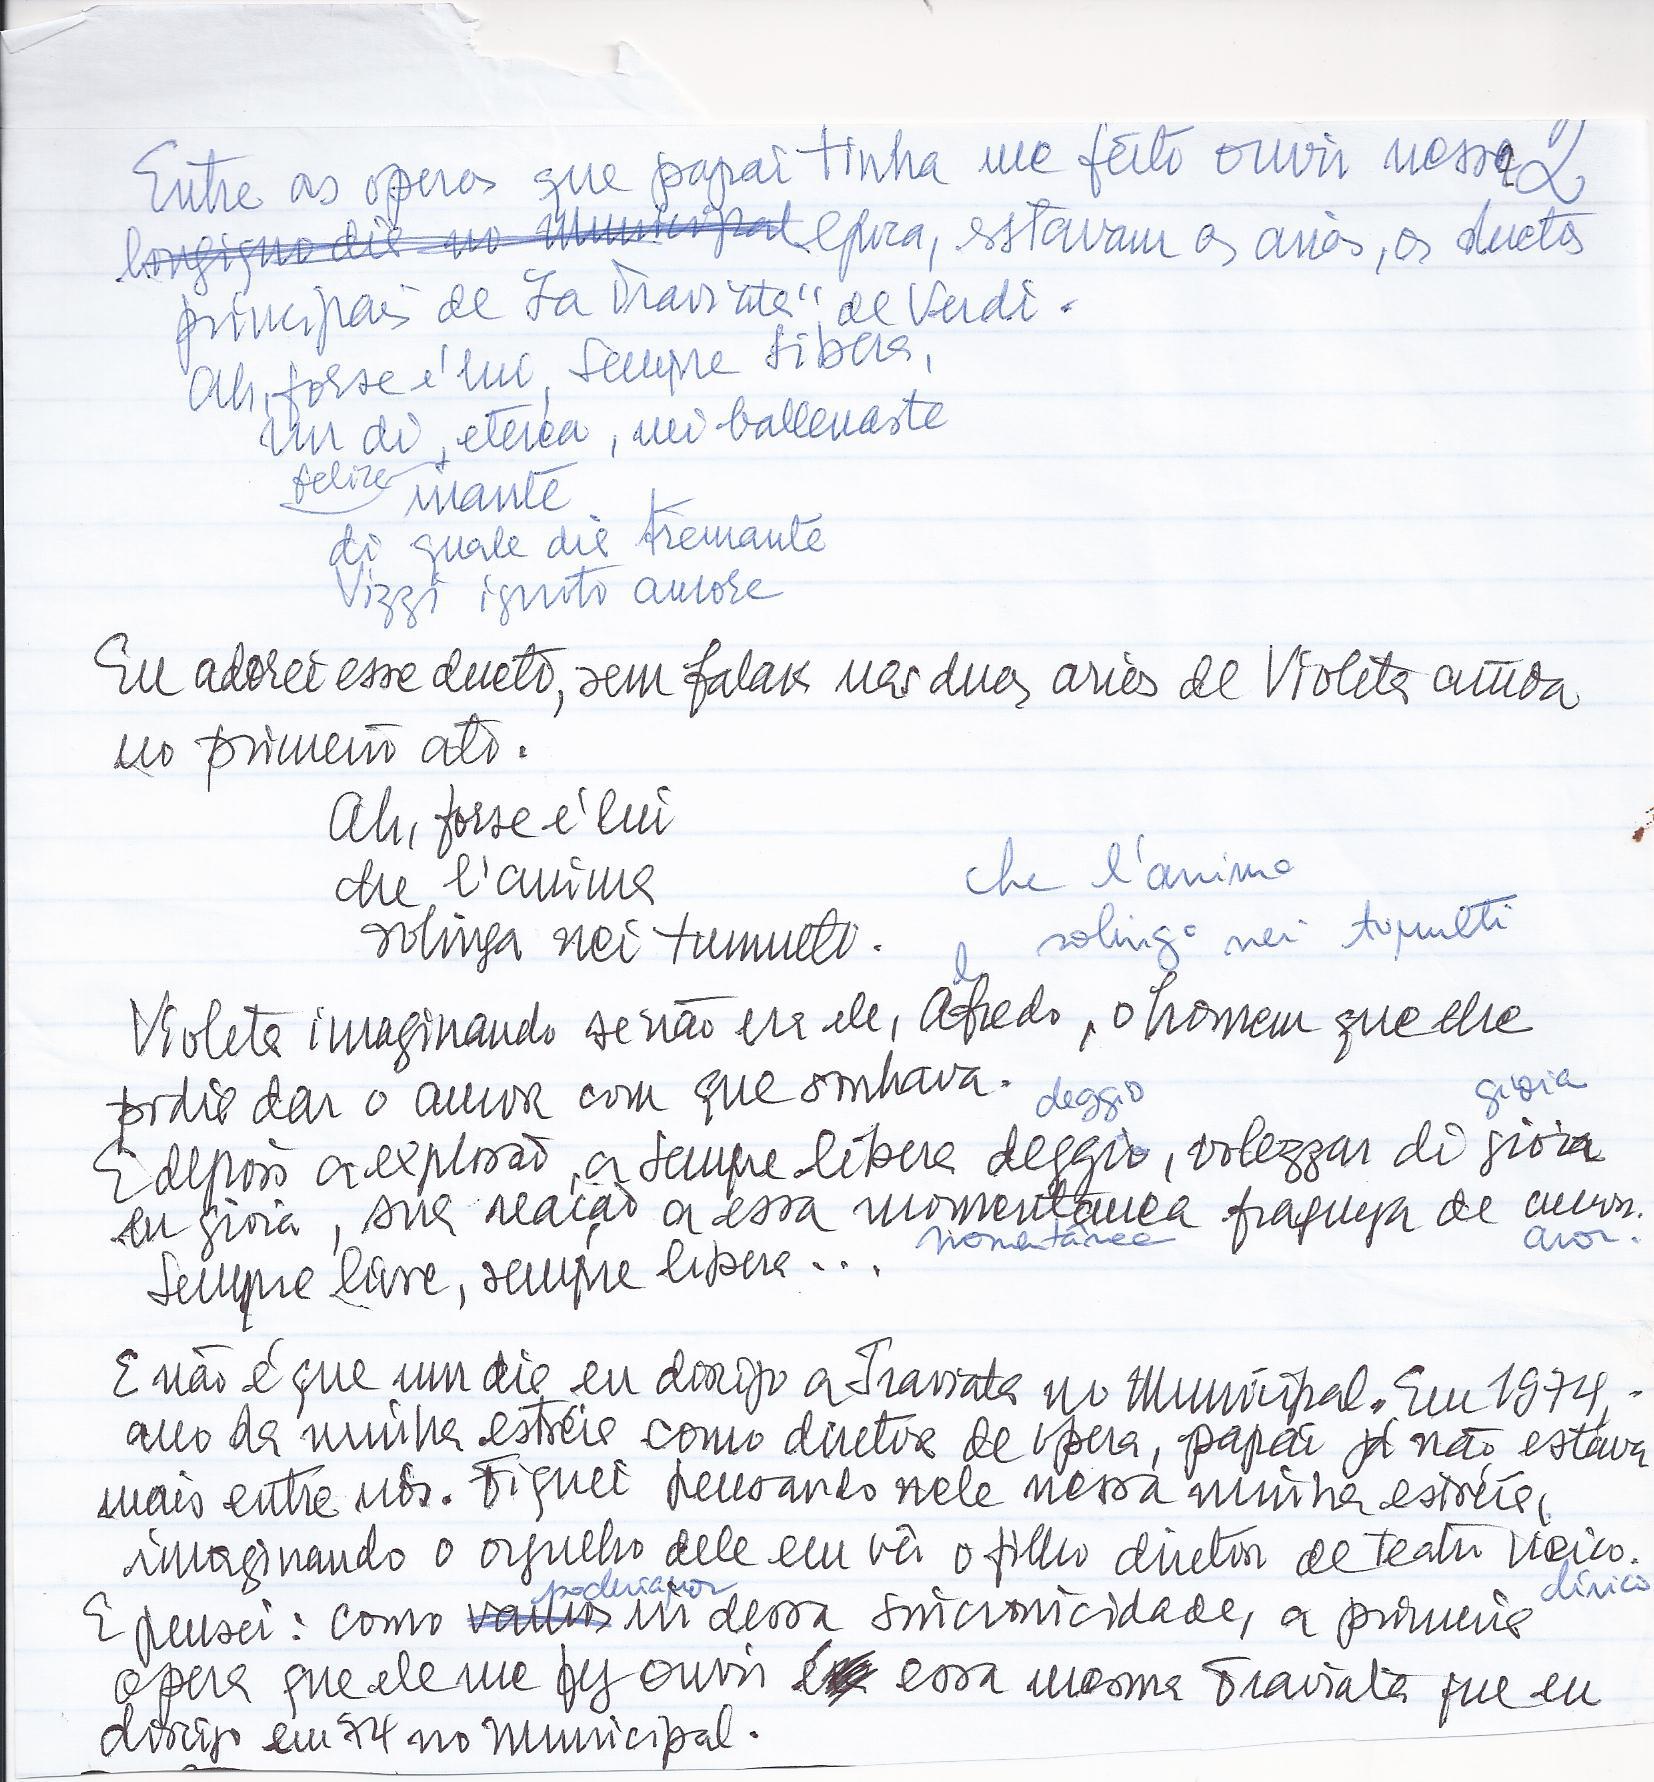 Entre as operas que papai tinha me feito ouvir nessa 2
longiguo die no municipal epoca, estavam as arias, os duetos
principais de "La Traviata" de Verdi.
Ah, forse é lui, Sempre libera,
un di, eterea, mi ballenaste
felice
inante
di quale die tremante
Vizzi ignoto amore
Eu adorei esse dueto, sem falar nas duas arias de Violeta ainda
no primeiro ato.
Ah, forse é lui
che l'anima
che l'anima
solinga nei tumulto.
solinga nei tumulti
l
Violeta imaginando se não era ele, Afredo, o homem que lhe
podia dar o amor com que sonhava.
deggio gioia
E depois a explosão, a sempre libera deggio, volezzar di gioia
en gioia, sua reação a essa momentanea fraqueza de amor.
momentânea amor.
Sempre livre, sempre libera...
E não é que um dia eu dirijo a Traviata no Municipal. Em 1974,
ano da minha estréia como diretor de opera, papai já não estava
mais entre nós. Fiquei pensando nele nessa minha estréia,
imaginando o orgulho dele em vêr o filho diretor de teatro lírico.
poderiamos lírico
E pensei: como vamos rir dessa sincronicidade, a primeira
opera que ele me fez ouvir é essa mesma Traviata que eu
dirijo em 74 no Municipal.